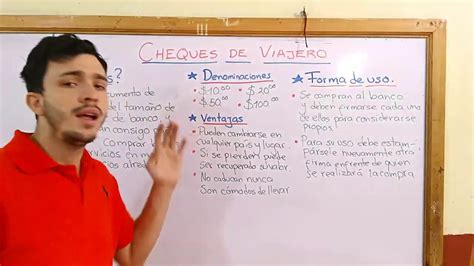 CHEQUES DE VIAJERO
s?
umento de
del tamaño de
de banco, y
an consigo
Comprar
rvicios en
★ Denominaciones
• $10.00 • $20.00
• $50.00 • $100.00
★ Ventajas
• Pueden cambiarse en
cualquier país y lugar.
• Si se pierden puede
ser recuperado su valor
• No caducan nunca
Son cómodos de llevar
★ Forma de uso.
• Se compran al banco
y deben firmarse cada uno
de ellos para considerarse
propios.
• Para su uso debe estam-
pársele nuevamente otra
firma enfrente de quien
se realizará la compra